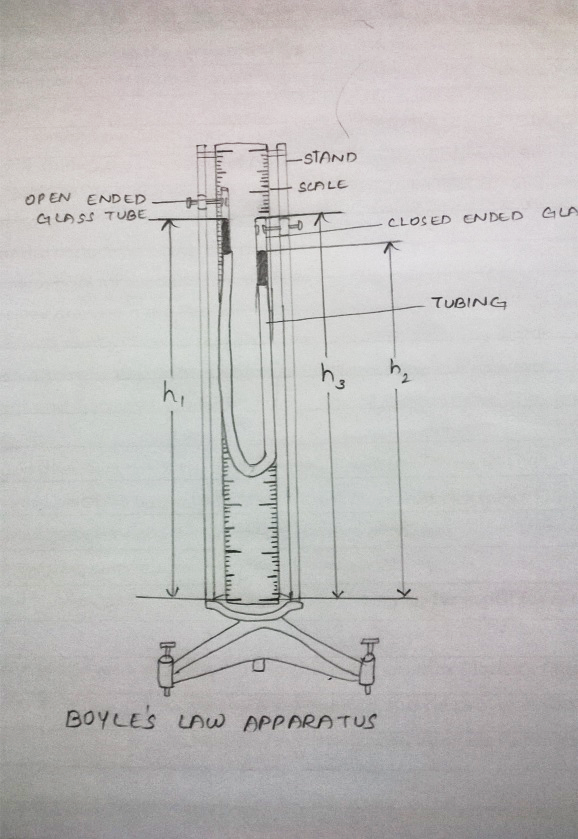 STAND
SCALE
OPEN ENDED
GLASS TUBE
CLOSED ENDED
TUBING
h1
h3
h2
BOYLE'S LAW APPARATUS